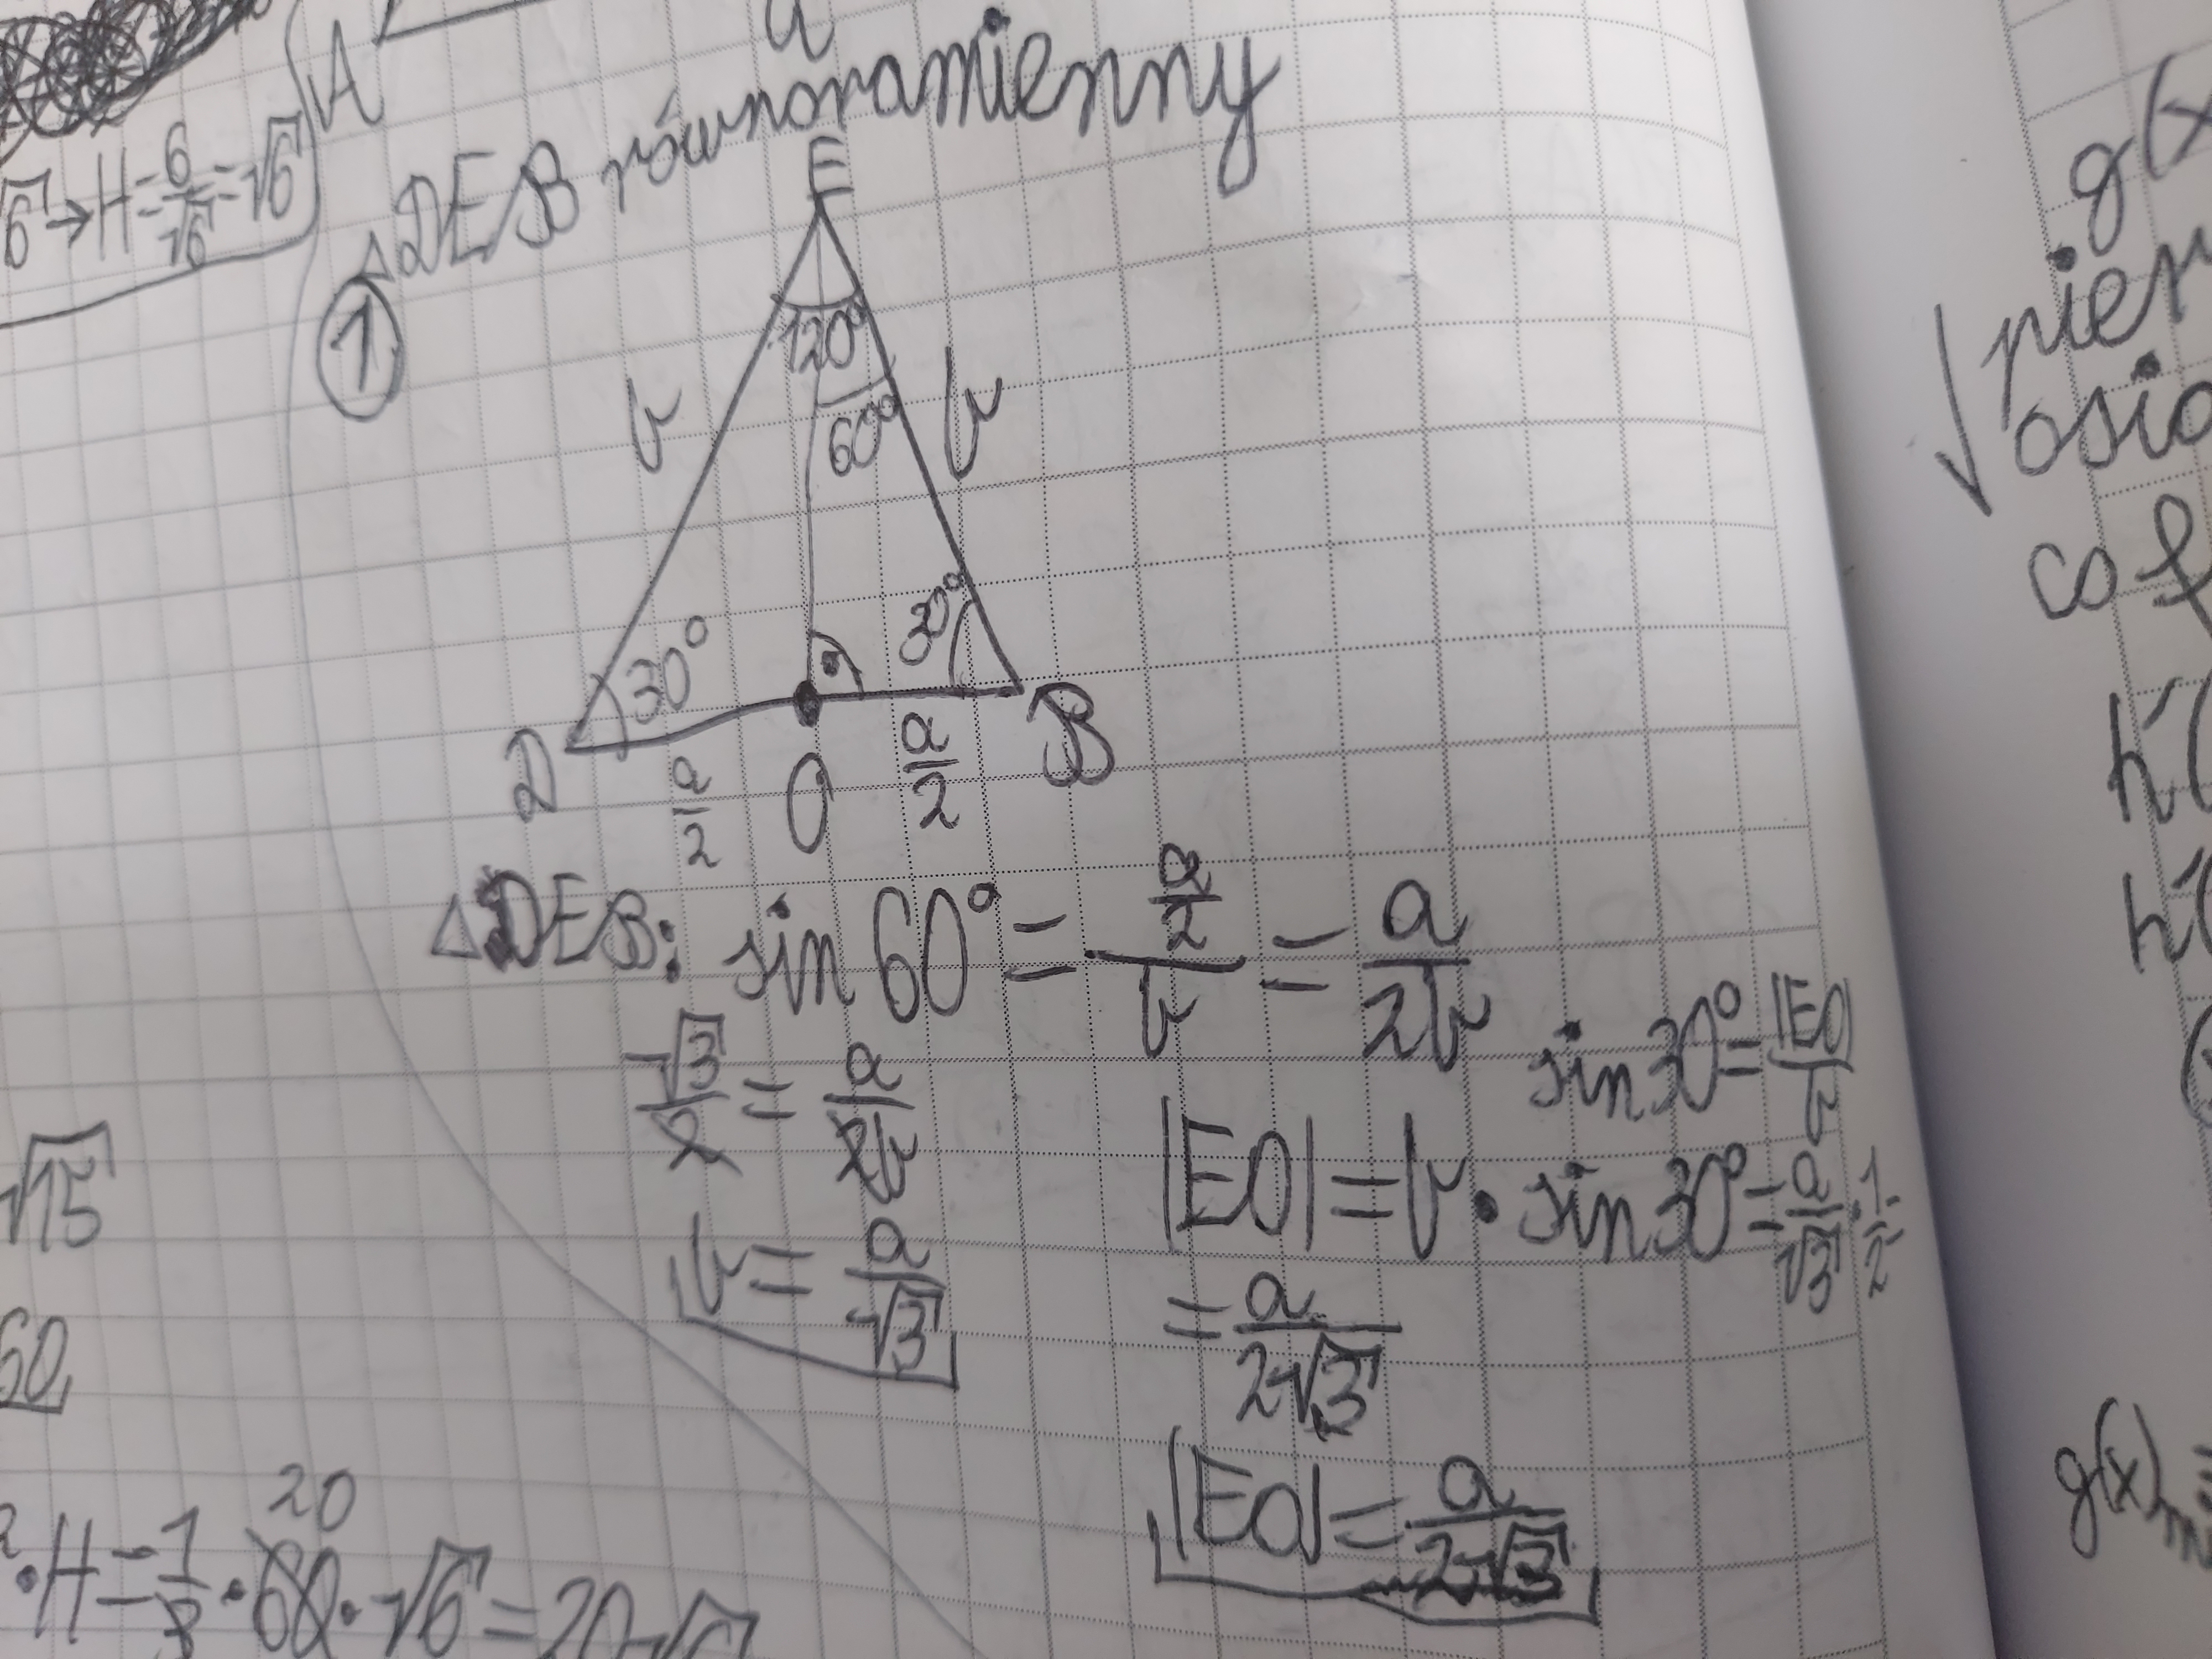 A
a
√6 → H = 6/√6 = √6
① △DEB równoramienny
E
120°
60°
b
b
30°
30°
D
a/2
O
a/2
B
△DEB: sin 60° = (a/2)/b = a/2b
√3/2 = a/2b
b = a/√3
sin 30° = |EO|/b
|EO| = b · sin 30° = a/√3 · 1/2
= a/2√3
|EO| = a/2√3
√15
60
· H = 1/3 · 60 · √6 = 20√6
20
g(x
osio
co
h'(
h'(
g(x)